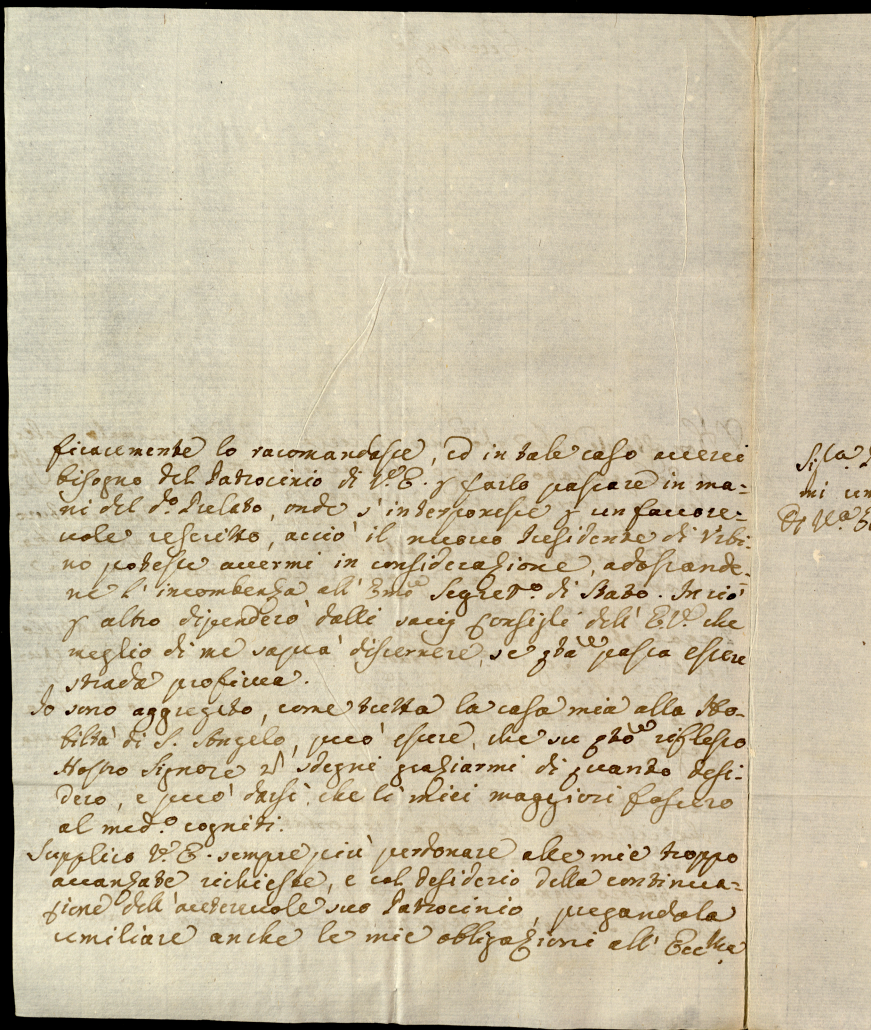 ficacemente lo racomandasse, ed in tale caso averei
bisogno del Patrocinio di V.ª E. p farlo passare in ma-
ni del d.º Prelato, onde s'interponesse p un favore-
vole rescritto, acciò il nuovo Presidente di Urbi-
no potesse avermi in considerazione, adossando-
ne l'incombenza all' Em.º Segret.º di Stato. In ciò
p altro dipenderò dalli savij Consigli dell' E.V.ª che
meglio di me saprà discernere, se possa essere
strada proficua.
Io sono aggregato, come tutta la casa mia alla No-
biltà di S. Angelo, può essere, che su riflesso
Nostro Signore sdegni graziarmi di quanto desi-
dero, e può darsi, che li miei maggiori fossero
al med.º cogniti.
Supplico V.ª E. sempre più perdonare alle mie troppo
avanzate richieste, e col desiderio della continua-
zione dell' autorevole suo Patrocinio, pregandola
umiliare anche le mie obbligazioni all' Ecc.ma
Si
mi um
Di V.ª E